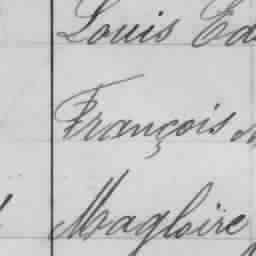 Louis Ed
François
Magloire